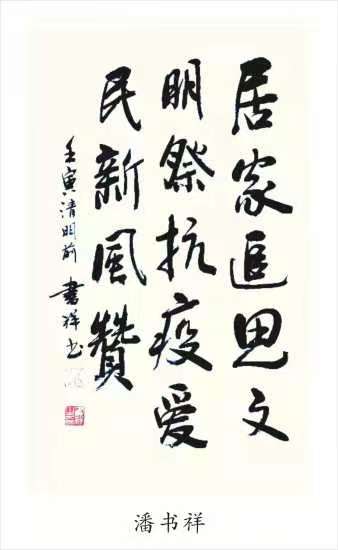 居家追思文
明祭抗疫爱
民新風贊
壬寅清明前 書祥书
潘书祥